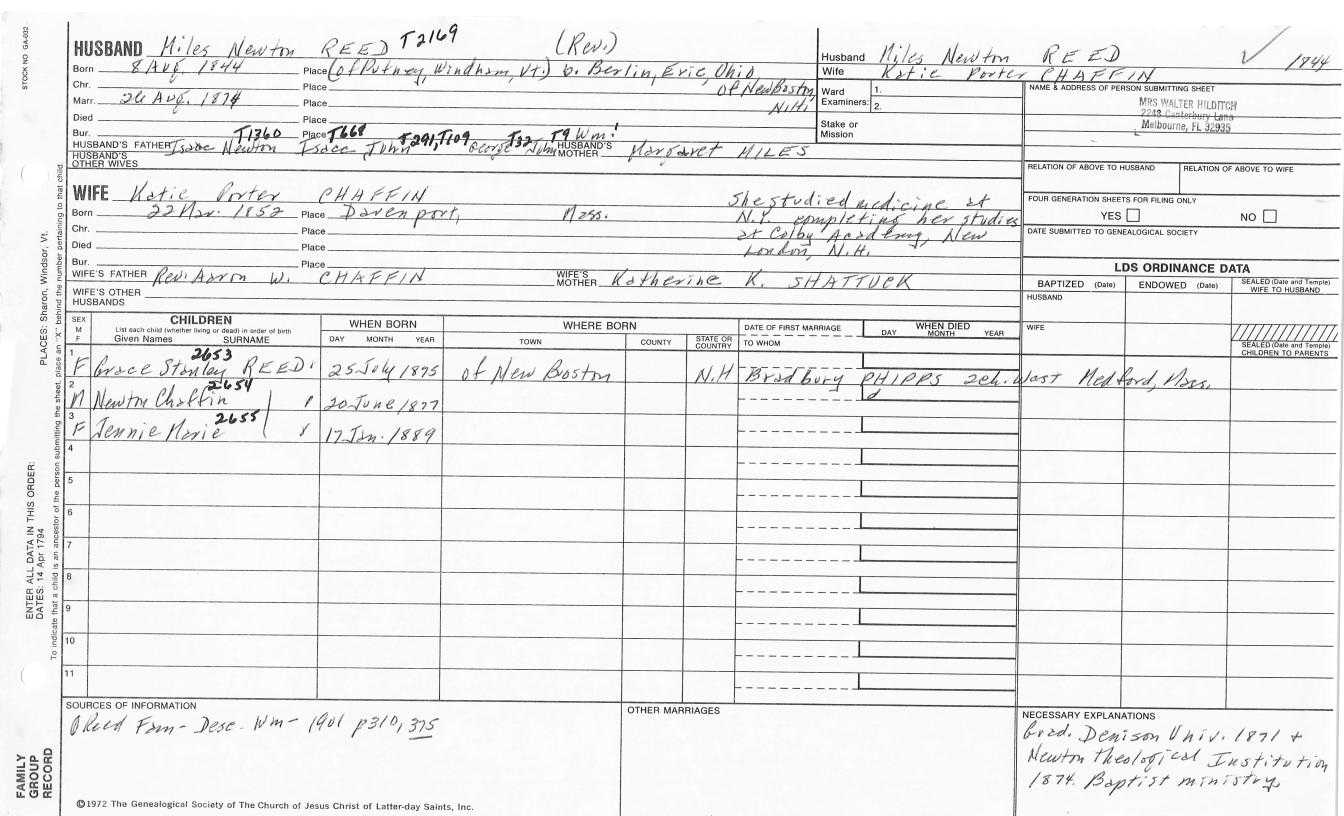 STOCK NO GA-032
HUSBAND Miles Newton REED T2169 (Rev.)
Born 8 Aug. 1844 Place (of Putney, Windham, Vt.) b. Berlin, Erie, Ohio
Chr. Place of New Boston,
Marr. 26 Aug. 1874 Place N.H.
Died Place
Bur. Place
T1360 T668 T291, T109 T32 T9 Wm!
HUSBAND'S FATHER Isaac Newton Isaac, John George John HUSBAND'S MOTHER Margaret MILES
HUSBAND'S OTHER WIVES
Husband Miles Newton REED ✓ 1844
Wife Katie Porter CHAFFIN
Ward Examiners: 1. 2.
Stake or Mission
NAME & ADDRESS OF PERSON SUBMITTING SHEET
MRS WALTER HILDITCH
2248 Canterbury Lane
Melbourne, FL 32935
RELATION OF ABOVE TO HUSBAND RELATION OF ABOVE TO WIFE
FOUR GENERATION SHEETS FOR FILING ONLY
YES NO
DATE SUBMITTED TO GENEALOGICAL SOCIETY
WIFE Katie Porter CHAFFIN
Born 22 Mar. 1852 Place Davenport, Mass.
Chr. Place
Died Place
Bur. Place
She studied medicine at
N.Y. completing her studies
at Colby Academy, New
London, N.H.
WIFE'S FATHER Rev. Aaron W. CHAFFIN WIFE'S MOTHER Katherine K. SHATTUCK
WIFE'S OTHER HUSBANDS
LDS ORDINANCE DATA
BAPTIZED (Date) ENDOWED (Date) SEALED (Date and Temple) WIFE TO HUSBAND
HUSBAND
WIFE
SEALED (Date and Temple) CHILDREN TO PARENTS
SEX M F CHILDREN WHEN BORN WHERE BORN DATE OF FIRST MARRIAGE WHEN DIED
List each child (whether living or dead) in order of birth
Given Names SURNAME DAY MONTH YEAR TOWN COUNTY STATE OR COUNTRY TO WHOM DAY MONTH YEAR
2653
1 F Grace Stanley REED 25 July 1875 of New Boston N.H Bradbury PHIPPS 2ch. West Medford, Mass.
2654
2 M Newton Chaffin " 20 June 1877 d
2655
3 F Jennie Marie " 17 Jan. 1889
4
5
6
7
8
9
10
11
SOURCES OF INFORMATION
Reed Fam- Desc. Wm- 1901 p310, 375
OTHER MARRIAGES
NECESSARY EXPLANATIONS
Grad. Denison Univ. 1871 +
Newton Theological Institution
1874. Baptist ministry
©1972 The Genealogical Society of The Church of Jesus Christ of Latter-day Saints, Inc.
FAMILY GROUP RECORD
ENTER ALL DATA IN THIS ORDER:
DATES: 14 Apr 1794 PLACES: Sharon, Windsor, Vt.
To indicate that a child is an ancestor of the person submitting the sheet, place an "X" behind the number pertaining to that child